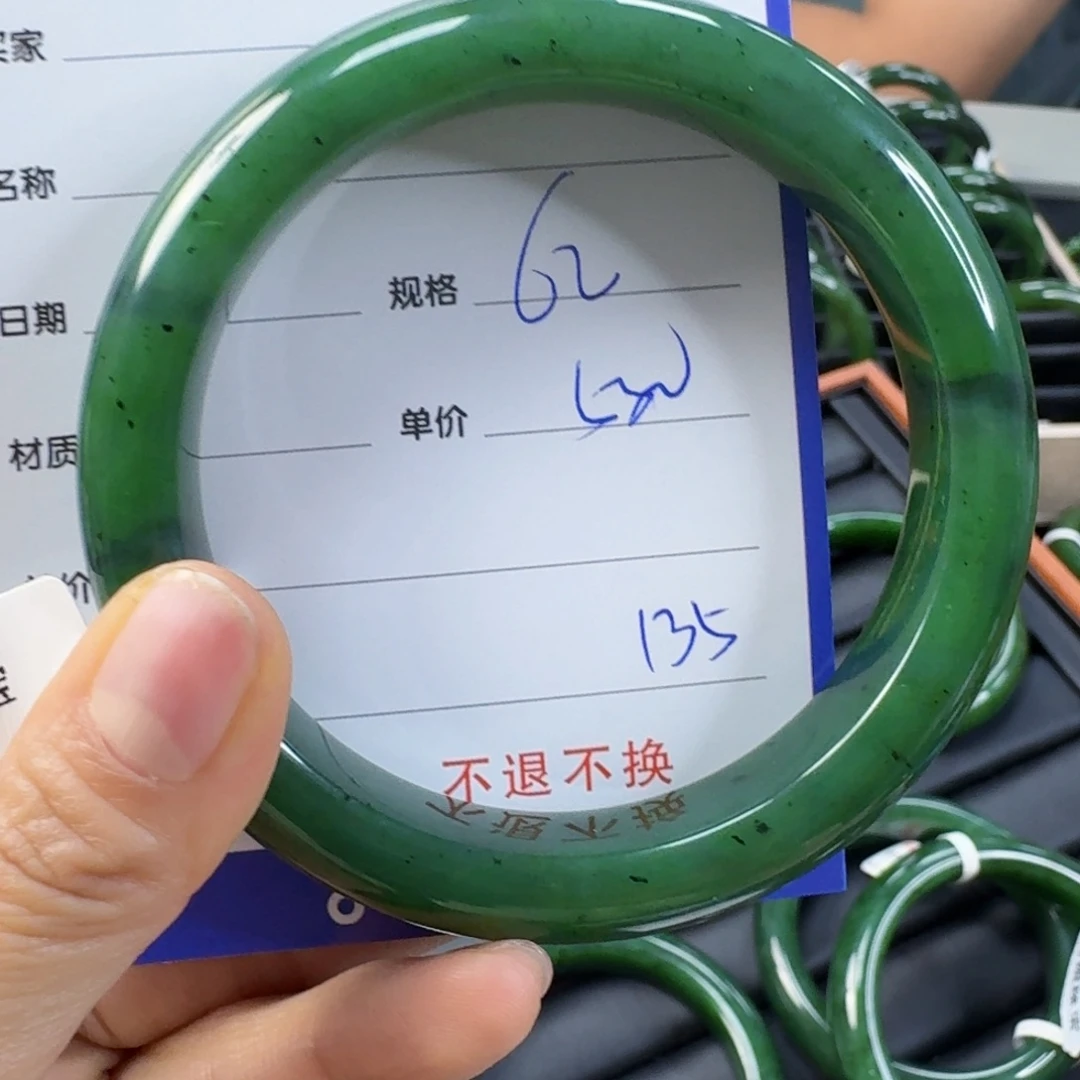 买家
名称
日期 规格 62
材质 单价
价
135
不退不换